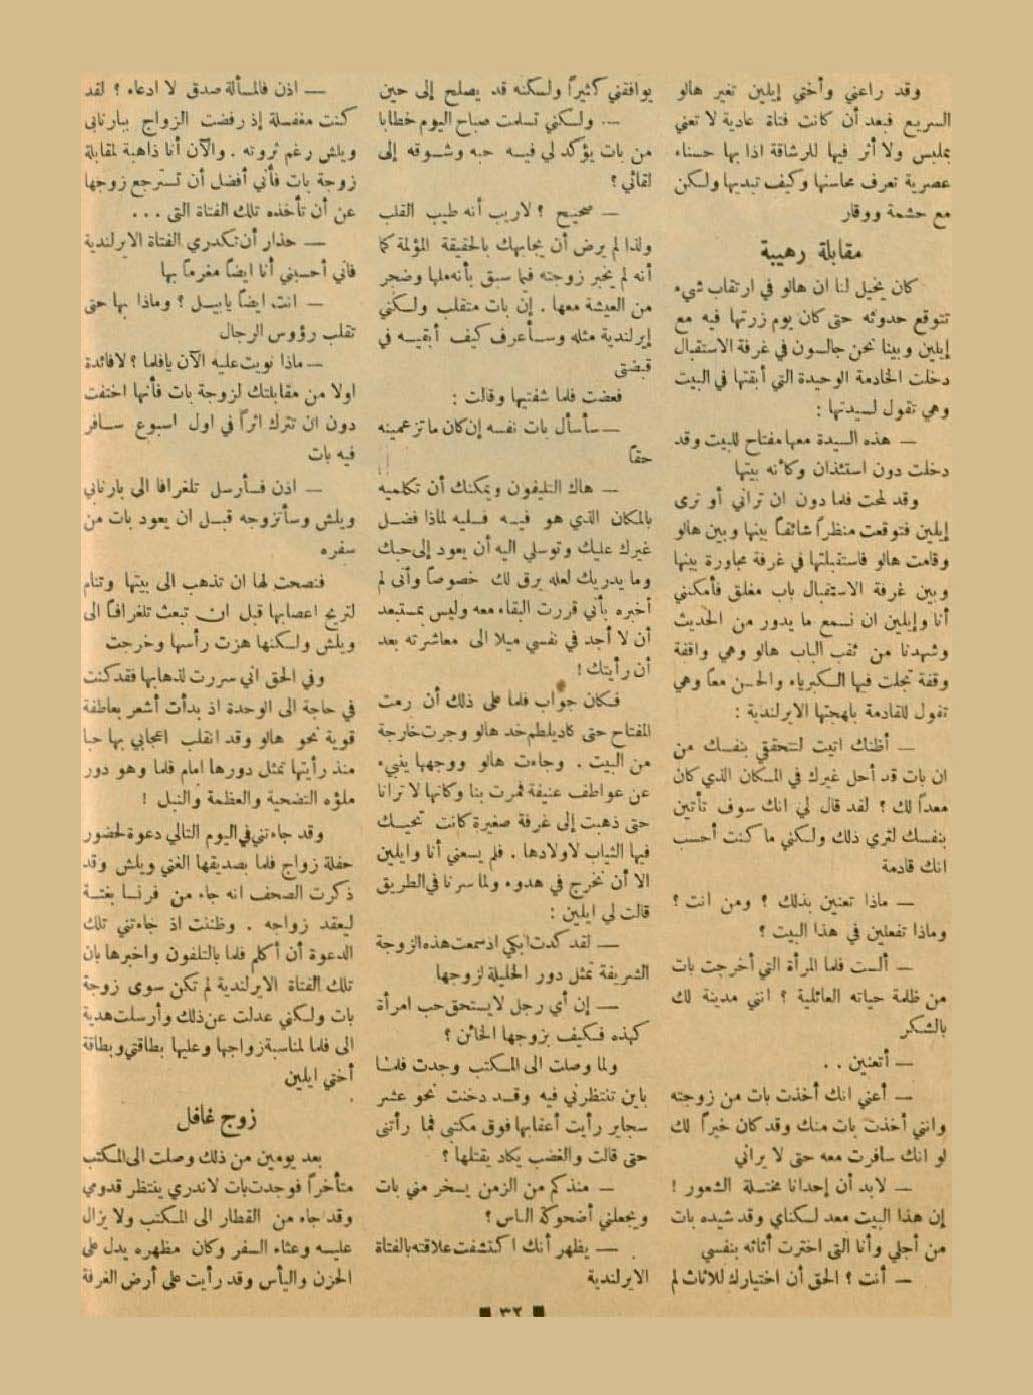 وقد راعني وأختي إيلين تغير هالو
السريع فبعد أن كانت فتاة عادية لا تعني
بملبس ولا أثر فيها للرشاقة اذا بها حسناء
عصرية تعرف محاسنها وكيف تبديها ولكن
مع حشمة ووقار
مقابلة رهيبة
كان يخيل لنا ان هالو في ارتقاب شيء
تتوقع حدوثه حتى كان يوم زرتها فيه مع
إيلين وبينا نحن جالسون في غرفة الاستقبال
دخلت الخادمة الوحيدة التي أبقتها في البيت
وهي تقول لسيدتها :
— هذه السيدة معها مفتاح للبيت وقد
دخلت دون استئذان وكأنه بيتها
وقد لمحت فلما دون ان تراني أو ترى
إيلين فتوقعت منظراً شائقاً بينها وبين هالو
وقامت هالو فاستقبلتها في غرفة مجاورة بينها
وبين غرفة الاستقبال باب مغلق فأمكنني
أنا وإيلين ان نسمع ما يدور من الحديث
وشهدنا من ثقب الباب هالو وهي واقفة
وقفة تجلت فيها الكبرياء والحسن معاً وهي
تقول للقادمة بلهجتها الايرلندية :
— أظنك اتيت لتتحققي بنفسك من
ان بات قد أحل غيرك في المكان الذي كان
معداً لك ؟ لقد قال لي انك سوف تأتين
بنفسك لتري ذلك ولكني ما كنت أحسب
انك قادمة
— ماذا تعنين بذلك ؟ ومن انت ؟
وماذا تفعلين في هذا البيت ؟
— ألست فلما المرأة التي أخرجت بات
من ظلمة حياته العائلية ؟ انني مدينة لك
بالشكر
— أتعنين . .
— أعني انك أخذت بات من زوجته
وانني أخذت بات منك وقد كان خيراً لك
لو انك سافرت معه حتى لا يراني
— لابد أن إحدانا مختلة الشعور !
إن هذا البيت معد لسكناي وقد شيده بات
من أجلي وأنا التي اخترت أثاثه بنفسي
— أنت ؟ الحق أن اختيارك للاثاث لم
يوافقني كثيراً ولكنه قد يصلح إلى حين
— ولكني تسلمت صباح اليوم خطابا
من بات يؤكد لي فيه حبه وشوقه إلى
لقائي ؟
— صحيح ؟ لاريب أنه طيب القلب
ولذا لم يرض أن يجابهك بالحقيقة المؤلمة كما
أنه لم يخبر زوجته فيما سبق بأنه ملها وضجر
من العيشة معها . إن بات متقلب ولكني
إيرلندية مثله وسأعرف كيف أبقيه في
قبضتي
فعضت فلما شفتيها وقالت :
— سأسأل بات نفسه إن كان ما تزعمينه
حقاً
— هاك التليفون ويمكنك أن تكلميه
بالمكان الذي هو فيه فسليه لماذا فضل
غيرك عليك وتوسلي اليه أن يعود إلى حبك
وما يدريك لعله يرق لك خصوصاً وأنى لم
أخبره بأني قررت البقاء معه وليس بمستبعد
أن لا أجد في نفسي ميلا الى معاشرته بعد
أن رأيتك !
فكان جواب فلما على ذلك أن رمت
المفتاح حتى كاد يلطم خد هالو وجرت خارجة
من البيت . وجاءت هالو ووجهها ينبيء
عن عواطف عنيفة فمرت بنا وكأنها لا ترانا
حتى ذهبت إلى غرفة صغيرة كانت تحيك
فيها الثياب لاولادها . فلم يسعني أنا وايلين
الا أن نخرج في هدوء ولما سرنا في الطريق
قالت لي ايلين :
— لقد كدت ابكي اذ سمعت هذه الزوجة
الشريفة تمثل دور الخليلة لزوجها
— إن أي رجل لا يستحق حب امرأة
كهذه فكيف بزوجها الخائن ؟
ولما وصلت الى المكتب وجدت فلما
باين تنتظرني فيه وقد دخنت نحو عشر
سجاير رأيت أعقابها فوق مكتبي فما رأتنى
حتى قالت والغضب يكاد يقتلها ؟
— منذ كم من الزمن يسخر مني بات
ويجعلني أضحوكة الناس ؟
— يظهر أنك اكتشفت علاقته بالفتاة
الايرلندية
— اذن فالمسألة صدق لا ادعاء ؟ لقد
كنت مغفلة إذ رفضت الزواج ببارنابى
ويلش رغم ثروته . والآن أنا ذاهبة لمقابلة
زوجة بات فأني أفضل أن تسترجع زوجها
عن أن تأخذه تلك الفتاة التى . . .
— حذار أن تكدري الفتاة الايرلندية
فاني أحسبني أنا ايضاً مغرماً بها
— انت ايضاً يابيل ؟ وماذا بها حتى
تقلب رؤوس الرجال
— ماذا نويت عليه الآن يافلما ؟ لافائدة
اولا من مقابلتك لزوجة بات فأنها اختفت
دون ان تترك اثراً في اول اسبوع سافر
فيه بات
— اذن فسأرسل تلغرافا الى بارنابي
ويلش وسأتزوجه قبل ان يعود بات من
سفره
فنصحت لها ان تذهب الى بيتها وتنام
لتريح اعصابها قبل ان تبعث تلغرافاً الى
ويلش ولكنها هزت رأسها وخرجت
وفي الحق اني سررت لذهابها فقد كنت
في حاجة الى الوحدة اذ بدأت أشعر بعاطفة
قوية نحو هالو وقد انقلب اعجابي بها حبا
منذ رأيتها تمثل دورها امام فلما وهو دور
ملؤه التضحية والعظمة والنبل !
وقد جاءتني في اليوم التالي دعوة لحضور
حفلة زواج فلما بصديقها الغني ويلش وقد
ذكرت الصحف انه جاء من فرنسا بغتة
ليعقد زواجه . وظننت اذ جاءتني تلك
الدعوة أن أكلم فلما بالتلفون واخبرها بان
تلك الفتاة الايرلندية لم تكن سوى زوجة
بات ولكني عدلت عن ذلك وأرسلت هدية
الى فلما لمناسبة زواجها وعليها بطاقتي وبطاقة
أختي ايلين
زوج غافل
بعد يومين من ذلك وصلت الى المكتب
متأخراً فوجدت بات لاندري ينتظر قدومي
وقد جاء من القطار الى المكتب ولا يزال
عليه وعثاء السفر وكان مظهره يدل على
الحزن واليأس وقد رأيت على أرض الغرفة
■ ٣٢ ■